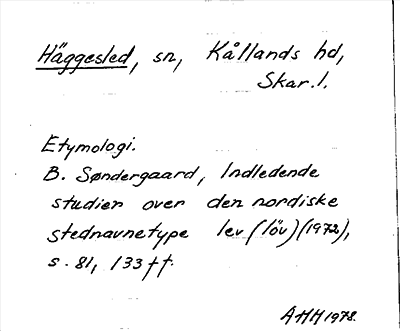 Häggesled, sn, Kållands hd,
Skar. l.
Etymologi.
B. Søndergaard, Indledende
studier over den nordiske
stednavnetype lev (löv) (1972),
s. 81, 133 ff.
AHH 1978.